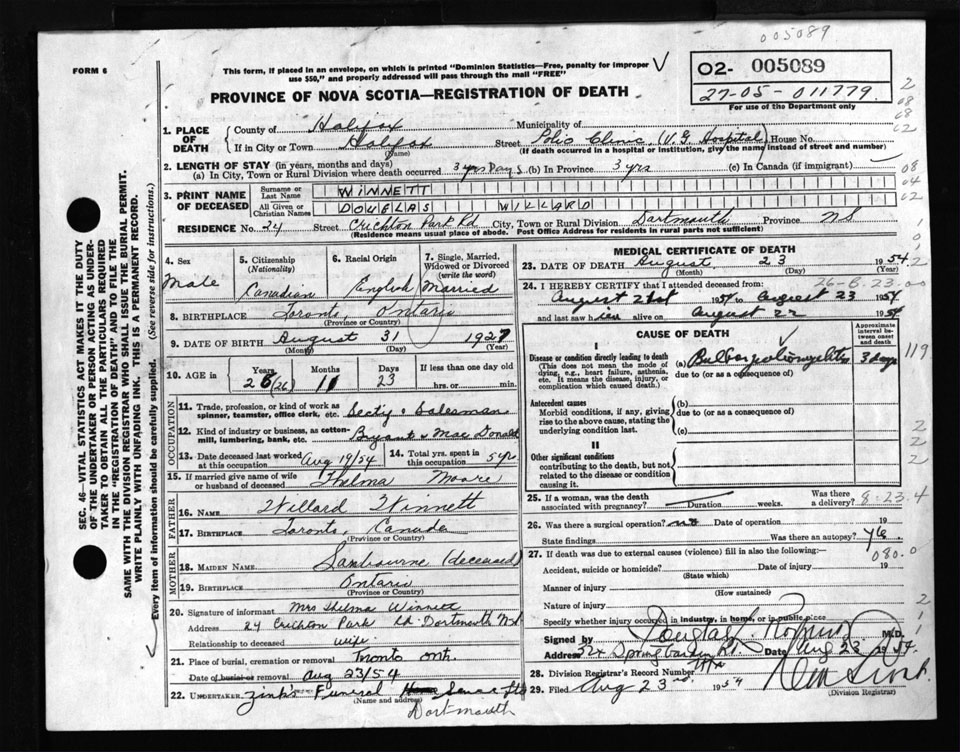 005089
FORM 6
This form, if placed in an envelope, on which is printed "Dominion Statistics—Free, penalty for improper
use $50," and properly addressed will pass through the mail "FREE"
02- 005089
27-05-011779
For use of the Department only
PROVINCE OF NOVA SCOTIA—REGISTRATION OF DEATH
1. PLACE OF DEATH
County of Halifax Municipality of
If in City or Town Halifax Street Polio Clinic (V.G. Hospital) House No.
(Name) (If death occurred in a hospital or institution, give the name instead of street and number)
2. LENGTH OF STAY (in years, months and days)
(a) In City, Town or Rural Division where death occurred 3 yrs Days (b) In Province 3 yrs (c) In Canada (if immigrant)
3. PRINT NAME OF DECEASED
Surname or Last Name WINNETT
All Given or Christian Names DOUGLAS WILLARD
RESIDENCE No. 24 Street Crichton Park Rd City, Town or Rural Division Dartmouth Province N.S
(Residence means usual place of abode. Post Office Address for residents in rural parts not sufficient)
4. Sex
Male
5. Citizenship
(Nationality)
Canadian
6. Racial Origin
English
7. Single, Married, Widowed or Divorced
(write the word)
Married
8. BIRTHPLACE Toronto, Ontario
(Province or Country)
9. DATE OF BIRTH August 31 1927
(Month) (Day) (Year)
10. AGE in Years Months Days If less than one day
26 (26) 11 23 hrs. or min.
OCCUPATION
11. Trade, profession, or kind of work as
spinner, teamster, office clerk, etc. Secty & Salesman
12. Kind of industry or business, as cotton-
mill, lumbering, bank, etc. Bryant & MacDonald
13. Date deceased last worked
at this occupation Aug 19/54
14. Total yrs. spent in
this occupation 5 yrs
15. If married give name of wife
or husband of deceased Thelma Moore
FATHER
16. NAME Willard Winnett
17. BIRTHPLACE Toronto, Canada
(Province or Country)
MOTHER
18. MAIDEN NAME Sambourne (deceased)
19. BIRTHPLACE Ontario
(Province or Country)
20. Signature of informant Mrs Thelma Winnett
Address 24 Crichton Park Rd. Dartmouth NS
Relationship to deceased wife
21. Place of burial, cremation or removal Toronto Ont.
Date of burial or removal Aug 23/54
22. UNDERTAKER Zink's Funeral Home
(Name and address)
Dartmouth
MEDICAL CERTIFICATE OF DEATH
23. DATE OF DEATH August 23 1954
(Month) (Day) (Year)
26-8-23-00
24. I HEREBY CERTIFY that I attended deceased from:
August 21st 1954 to August 23 1954
and last saw him alive on August 22 1954
CAUSE OF DEATH
Approximate interval between onset and death
I
Disease or condition directly leading to death
(This does not mean the mode of dying, e.g., heart failure, asthenia, etc. It means the disease, injury, or complication which caused death.)
(a) Bulbar poliomyelitis 3 days
due to (or as a consequence of)
119
Antecedent causes
Morbid conditions, if any, giving rise to the above cause, stating the underlying condition last.
(b)
due to (or as a consequence of)
(c)
II
Other significant conditions
contributing to the death, but not related to the disease or condition causing it.
25. If a woman, was the death
associated with pregnancy? Duration weeks. Was there a delivery?
8-23-4
26. Was there a surgical operation? no Date of operation 19
State findings Was there an autopsy?
080.0
27. If death was due to external causes (violence) fill in also the following:—
Accident, suicide or homicide? Date of injury 19
(State which)
Manner of injury
(How sustained)
Nature of injury
Specify whether injury occurred in industry, in home, or in public place
Signed by Douglas M.D.
Address Spring Garden Rd Date Aug 23 1954
28. Division Registrar's Record Number
29. Filed Aug 23rd 1954
(Division Registrar)
SEC. 46—VITAL STATISTICS ACT MAKES IT THE DUTY
OF THE UNDERTAKER OR PERSON ACTING AS UNDER-
TAKER TO OBTAIN ALL THE PARTICULARS REQUIRED
IN THE "REGISTRATION OF DEATH" AND TO FILE THE
SAME WITH THE DIVISION REGISTRAR WHO SHALL ISSUE THE BURIAL PERMIT.
WRITE PLAINLY WITH UNFADING INK. THIS IS A PERMANENT RECORD.
Every item of information should be carefully supplied. (See reverse side for instructions.)